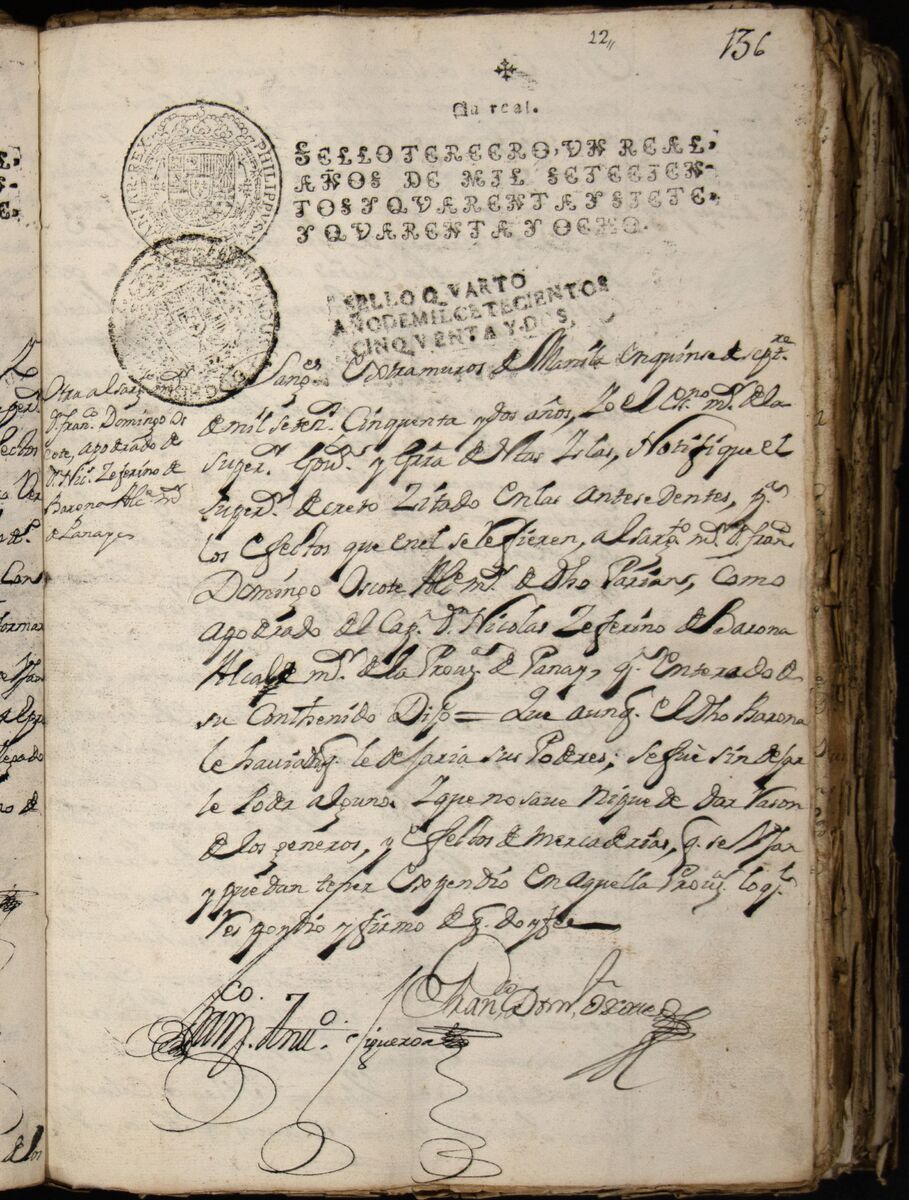 12,,
136
✠
Un real.
SELLO TERCERO, VN REAL,
AÑOS DE MIL SETECIEN-
TOS Y QVARENTA Y SIETE,
Y QVARENTA Y OCHO.
PHILIPPVS
SELLO QVARTO
AÑO DE MIL CETECIENTOS
CINQVENTA Y DOS,
Otra al sarg.to m.r
D. fran.co Domingo de
ote, apoderado de
D. Nic.s Zeferino de
Barona Alc.e m.r
de Panay
Extramuros de Manila en quinse de sept.re
de mil seteс.s Cinquenta y dos años, Yo el es.no m.r de la
super.r Gov.n y Grrã de estas Islas, Notifique el
super.r decreto Zitado en las antesedentes, p.a
los efectos que en el se refieren, al sarg.to m.r D. fran.co
Domingo Oscote Alc.e m.r de dho Parian, como
apoderado del Cap.n D.n Nicolas Zeferino de Barona
Alcalde m.r de la Prov.a de Panay, q. enterado de
su Conthenido Dijo = Que aunq. el dho Barona
le havia dho q. le dejaria sus Poderes, se fuè sin dejar
le Poder alguno. Y que no save ni puede dar rason
de los generos, y efectos de mercaderias, q.
y puedan tener expendio en aquella Prov.a lo q.
respondio y firmo de q. doy fee
Fran.co Ant.o Figueroa
Fran.co Dom.